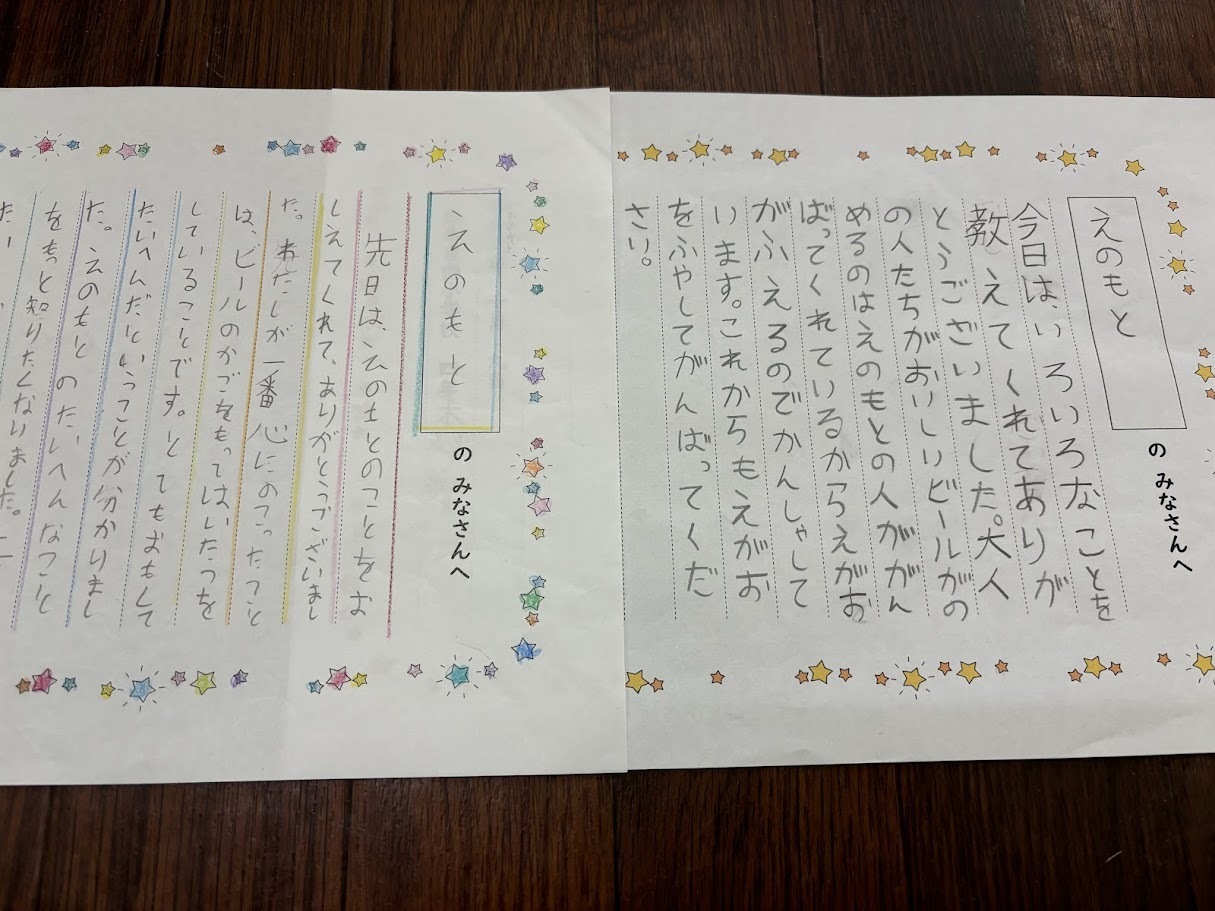 えのもと
の みなさんへ
今日は、いろいろなことを
教えてくれてありが
とうございました。大人
の人たちがおいしいビールがの
めるのはえのもとの人ががん
ばってくれているからえがお
がふえるのでかんしゃして
います。これからもえがお
をふやしてがんばってくだ
さい。
えのもと
の みなさんへ
先日は、えのもとのことをお
しえてくれて、ありがとうございまし
た。わたしが一番心にのこったこと
は、ビールのかごをもってはいたつを
していることです。とてもおもして
たいへんだということが分かりまし
た。えのもとのたいへんなこと
をもっと知りたくなりました。こ